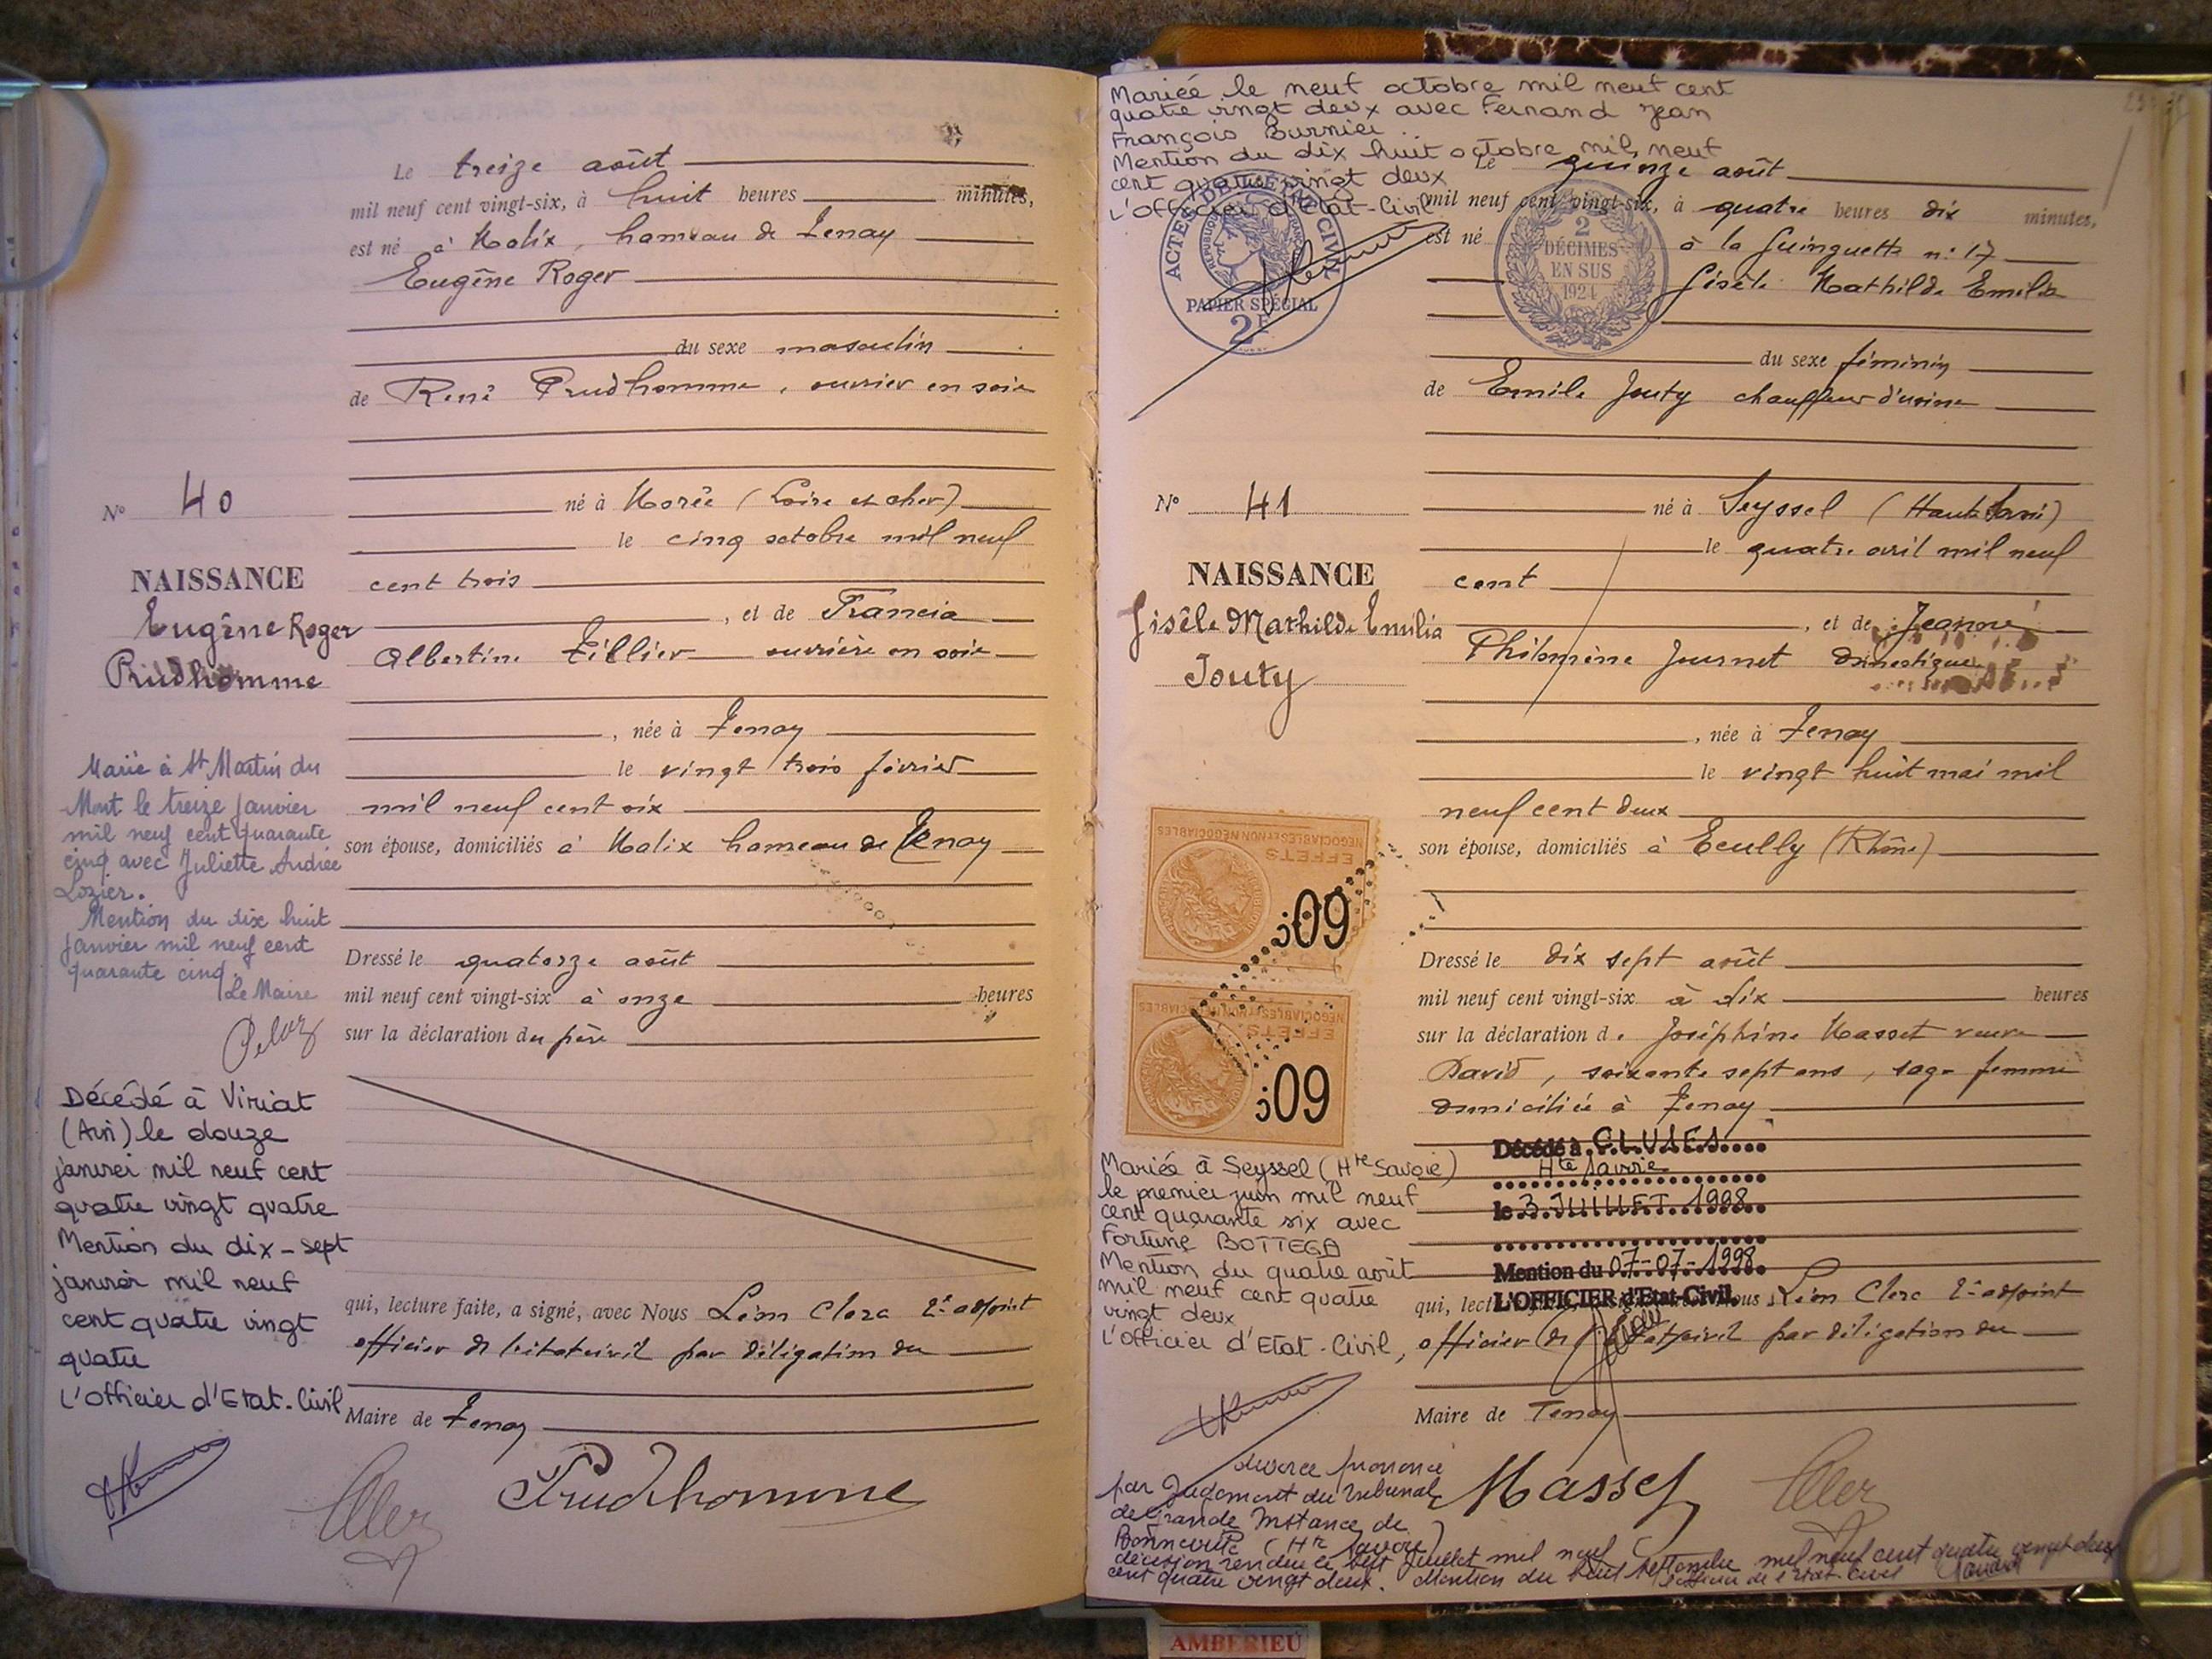 Le treize août
mil neuf cent vingt-six, à huit heures minutes,
est né à Malix, hameau de Tenay
Eugène Roger
du sexe masculin
de René Prudhomme, ouvrier en soie
né à Morée (Loire et cher)
le cinq octobre mil neuf
cent trois
, et de Francia
Albertine Tillier ouvrière en soie
, née à Tenay
le vingt trois février
mil neuf cent six
son épouse, domiciliés à Malix hameau de Tenay
Dressé le quatorze août
mil neuf cent vingt-six à onze heures
sur la déclaration du père
qui, lecture faite, a signé, avec Nous Léon Clerc 2e adjoint
officier de l'état civil par délégation du
Maire de Tenay
Prudhomme
No 40
NAISSANCE
Eugène Roger
Prudhomme
Marié à St Martin du
Mont le treize Janvier
mil neuf cent quarante
cinq avec Juliette Andrée
Lozier.
Mention du dix huit
Janvier mil neuf cent
quarante cinq.
Le Maire
Décédé à Viriat
(Ain) le douze
janvier mil neuf cent
quatre vingt quatre
Mention du dix-sept
janvier mil neuf
cent quatre vingt
quatre
L'Officier d'Etat-Civil
Mariée le neuf octobre mil neuf cent
quatre vingt deux avec Fernand Jean
François Burnier
Mention du dix huit octobre mil neuf
cent quatre vingt deux
L'Officier d'Etat-Civil
ACTES DE L'ÉTAT CIVIL
RÉPUBLIQUE FRANÇAISE
PAPIER SPÉCIAL
2F
2
DÉCIMES
EN SUS
1924
Le quinze août
mil neuf cent vingt-six, à quatre heures dix minutes,
est né à la Guinguette n: 17
Gisèle Mathilde Emilia
du sexe féminin
de Emile Jouty chauffeur d'usine
né à Seyssel (Haute Savoie)
le quatre avril mil neuf
cent
, et de Jeanne
Philomène Journet domestique
, née à Tenay
le vingt huit mai mil
neuf cent deux
son épouse, domiciliés à Ecully (Rhône)
Dressé le dix sept août
mil neuf cent vingt-six à dix heures
sur la déclaration de Joséphine Masset veuve
David, soixante sept ans, sage femme
domiciliée à Tenay
qui, lecture Nous Léon Clerc 2e adjoint
officier de l'état civil par délégation du
Maire de Tenay
Masset
No 41
NAISSANCE
Gisèle Mathilde Emilia
Jouty
NÉGOCIABLES ET NON NÉGOCIABLES
EFFETS
60c
NÉGOCIABLES ET NON NÉGOCIABLES
EFFETS
60c
Décédé à CLUSES
Hte Savoie
le 3 JUILLET 1998
Mention du 07-07-1998
L'OFFICIER d'Etat-Civil.
Mariée à Seyssel (Hte Savoie)
le premier juin mil neuf
cent quarante six avec
Fortuné BOTTEGA
Mention du quatre août
mil neuf cent quatre
vingt deux
L'Officier d'Etat-Civil,
divorce prononcé
par Jugement du Tribunal
de Grande Instance de
Bonneville (Hte Savoie)
décision rendue le sept Juillet mil neuf
cent quatre vingt deux. Mention du huit septembre mil neuf cent quatre vingt deux
l'officier de l'état civil
AMBERIEU